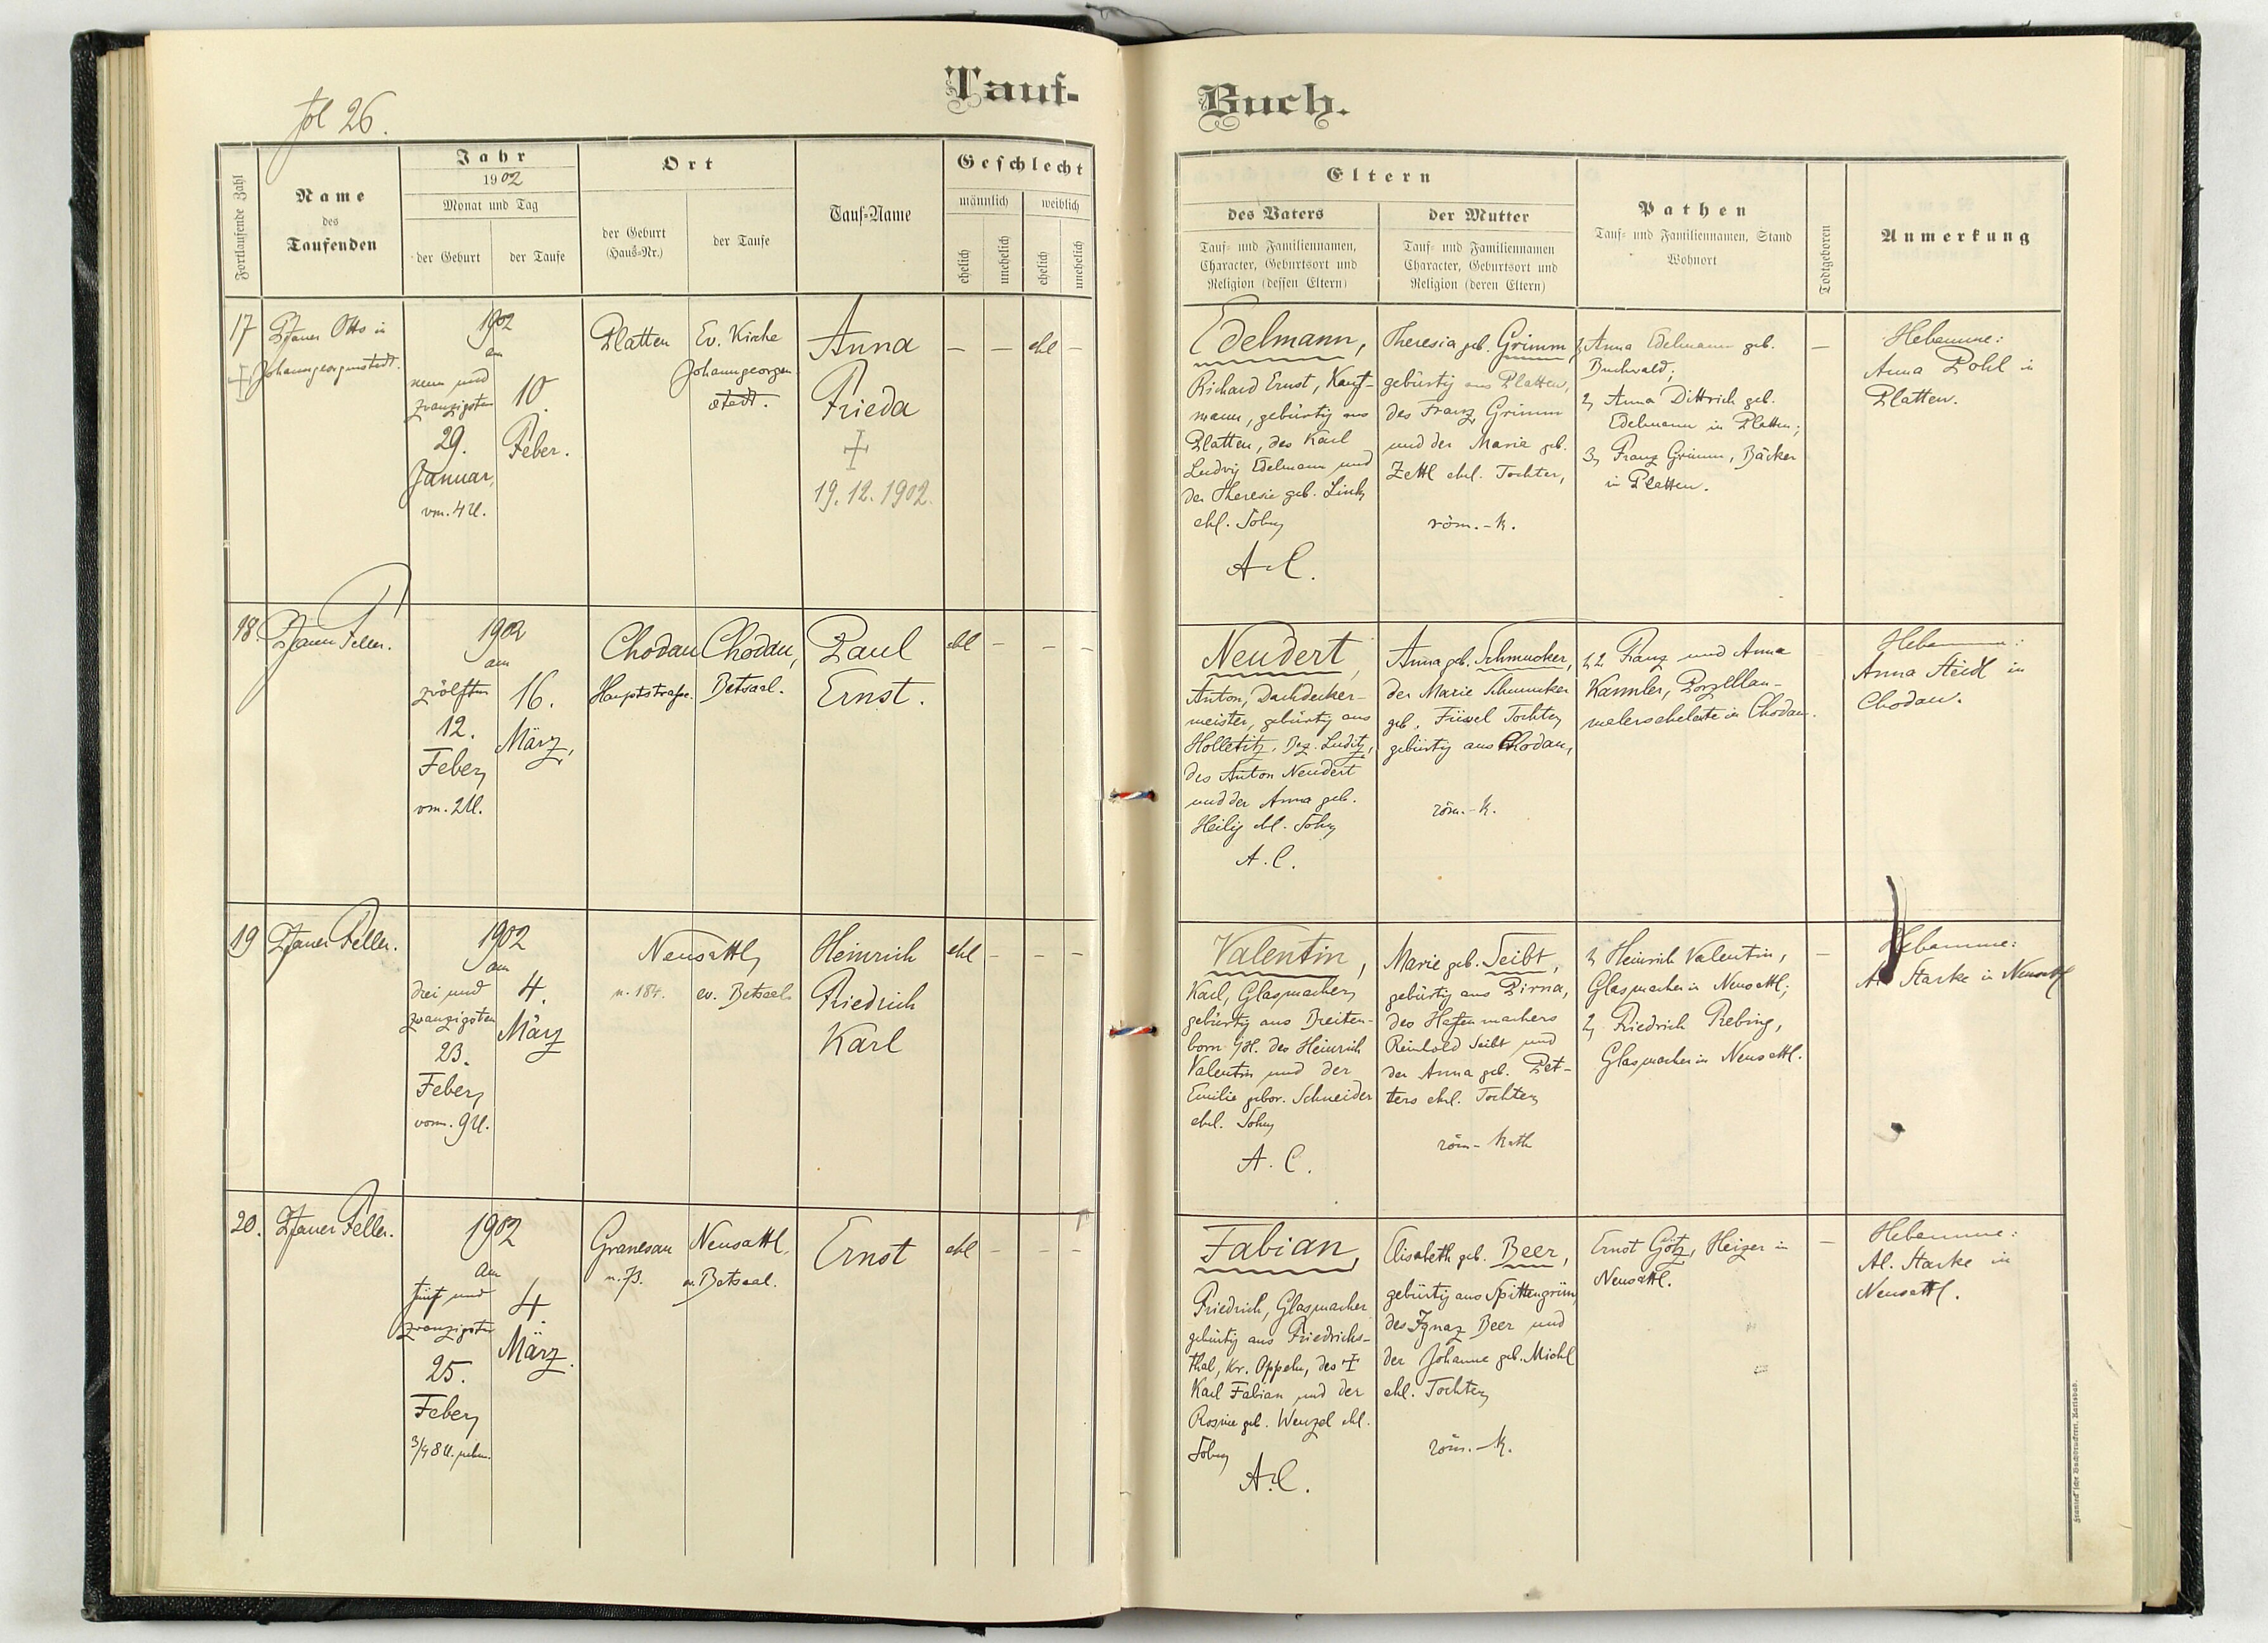 fol 26.
Tauf-
Buch.
Fortlaufende Zahl
Name
des
Taufenden
Jahr
1902
Monat und Tag
der Geburt
der Taufe
Ort
der Geburt
(Haus-Nr.)
der Taufe
Tauf-Name
Geschlecht
männlich
weiblich
ehelich
unehelich
ehelich
unehelich
Eltern
des Vaters
Tauf- und Familiennamen,
Character, Geburtsort und
Religion (dessen Eltern)
der Mutter
Tauf- und Familiennamen
Character, Geburtsort und
Religion (deren Eltern)
Pathen
Tauf- und Familiennamen, Stand
Wohnort
Todtgeboren
Anmerkung
17
Pfarrer Otto in
Johanngeorgenstadt.
1902
am
neun und
zwanzigsten
29.
Januar,
vm. 4 U.
10.
Feber.
Platten
Ev. Kirche
Johanngeorgen
stadt.
Anna
Frieda
+
19.12.1902.
— — ehl —
Edelmann,
Richard Ernst, Kauf-
mann, gebürtig aus
Platten, des Karl
Ludwig Edelmann und
der Theresie geb. Link,
ehl. Sohn
A.C.
Theresia geb. Grimm,
gebürtig aus Platten,
des Franz Grimm
und der Marie geb.
Zettl ehel. Tochter,
röm.-k.
1, Anna Edelmann geb.
Buchwald;
2, Anna Dittrich geb.
Edelmann in Platten;
3, Franz Grimm, Bäcker
in Platten.
—
Hebamme:
Anna Pohl in
Platten.
18.
Pfarrer Feller.
1902
am
zwölften
12.
Feber,
vm. 2 U.
16.
März,
Chodau
Hauptstrasse.
Chodau,
Betsaal.
Paul
Ernst.
ehl — — —
Neudert,
Anton, Dachdecker-
meister, gebürtig aus
Holletitz, Bez. Luditz,
des Anton Neudert
und der Anna geb.
Heilig ehl. Sohn
A.C.
Anna geb. Schmucker,
der Marie Schmucker
geb. Tochter,
gebürtig aus Chodau,
röm.-k.
1, 2 Franz und Anna
Kannler, Porzellan-
malerseheleute in Chodau.
Hebamme:
Anna Steidl in
Chodau.
19
Pfarrer Feller.
1902
am
drei und
zwanzigsten
23.
Feber,
vorm. 9 U.
4.
März
Neusattl,
n. 184.
ev. Betsaal.
Heinrich
Friedrich
Karl
ehl — — —
Valentin,
Karl, Glasmacher,
gebürtig aus Breiten-
born des Heinrich
Valentin und der
Emilie gebor. Schneider
ehel. Sohn
A.C.
Marie geb. Seibt,
gebürtig aus Pirna,
des Hafenmachers
Reinhold Seibt und
der Anna geb. Pet-
ters ehel. Tochter,
röm-kath
1, Heinrich Valentin,
Glasmacher in Neusattl;
2, Friedrich Rebing,
Glasmacher in Neusattl.
—
Hebamme:
Al. Starke in Neusattl
20.
Pfarrer Feller.
1902
am
fünf und
zwanzigsten
25.
Feber,
3/4 8 U. nchm.
4.
März.
Granesau
n. 73.
Neusattl,
ev. Betsaal.
Ernst
ehl — — —
Fabian,
Friedrich, Glasmacher
gebürtig aus Friedrichs-
thal, Kr. Oppeln, des +
Karl Fabian und der
Rosine geb. Wenzel ehl.
Sohn
A.C.
Elisabeth geb. Beer,
gebürtig aus Spittengrün,
des Ignaz Beer und
der Johanne geb. Michl
ehl. Tochter,
röm.-k.
Ernst Götz, Heizer in
Neusattl.
—
Hebamme:
Al. Starke in
Neusattl.